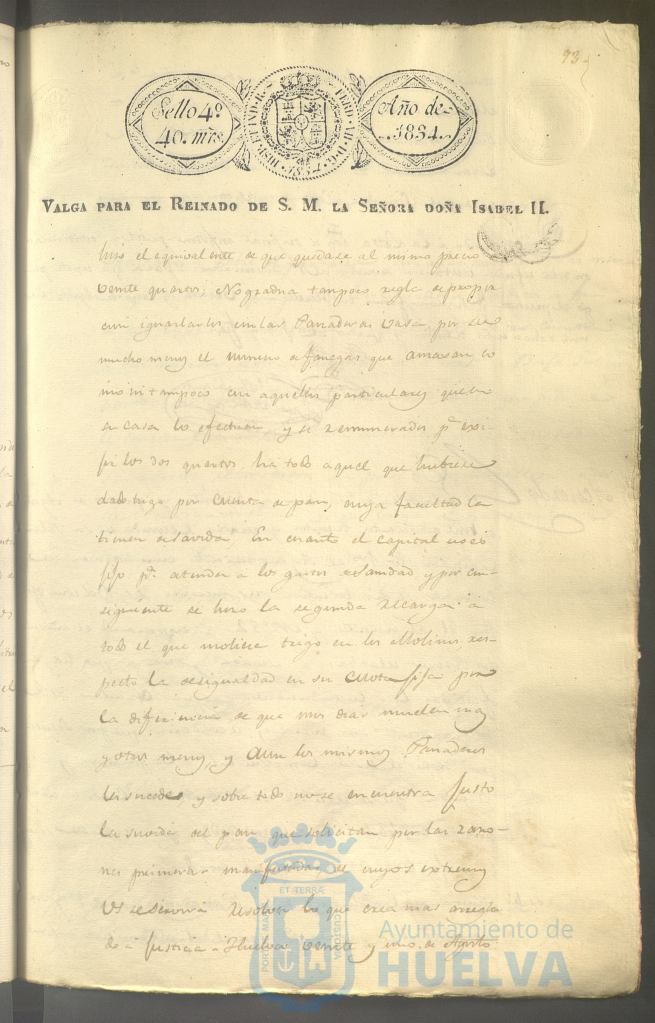 93
Sello 4º
40. mrs.
HISP. ET IND. R. FERD. VII. D. G.
1834
Año de
1834.
VALGA PARA EL REINADO DE S. M. LA SEÑORA DOÑA ISABEL II.
hiso el equivalente de que quedase al mismo precio
veinte quartos. No gradua tampoco regla de propor
cion igualarlos en las Panaderas vasa, por
mucho menos el numero de fanegas que amasan, co
mo ni tampoco con aquellos particulares que en
su casa lo efectuan y se remunerados pª exi-
los dos quartos, ha todo aquel que hubiese
dado trigo por cuenta de pan, cuya facultad la
tienen En cuanto el capital
fijo pª atender a los gastos de sanidad y por con-
siguiente se hiso la segunda recarga a
todo el que moliese trigo en los Molinos res-
pecto la desigualdad en su cuota fija por
la diferiencia de que unos dias muelen mas
y otros menos, y aun los mismos Panaderos
les sucede, y sobre todo no se encuentra justo
la suvida del pan que solicitan por las razo-
nes primeras manifestadas de cuyos extremos
VS se servirá resolver lo que crea mas arregla
do á Justicia. Huelva veinte y uno de Agosto
PORTUS MARIS ET TERRÆ CUSTODIA
Ayuntamiento de
HUELVA